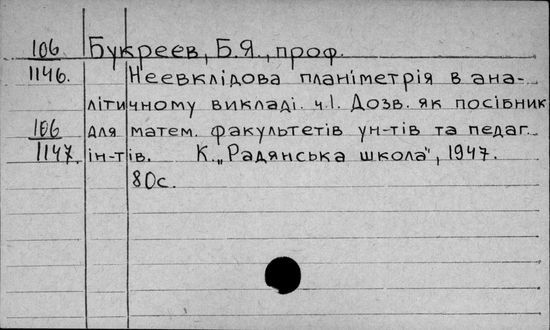 106 Букреев, Б.Я., проф.
1146. Неевклідова планіметрія в ана-
літичному викладі. ч.І. Дозв. як посібник
106 для матем. факультетів ун-тів та педаг.
1147. ін-тів. К. „Радянська школа", 1947.
80с.